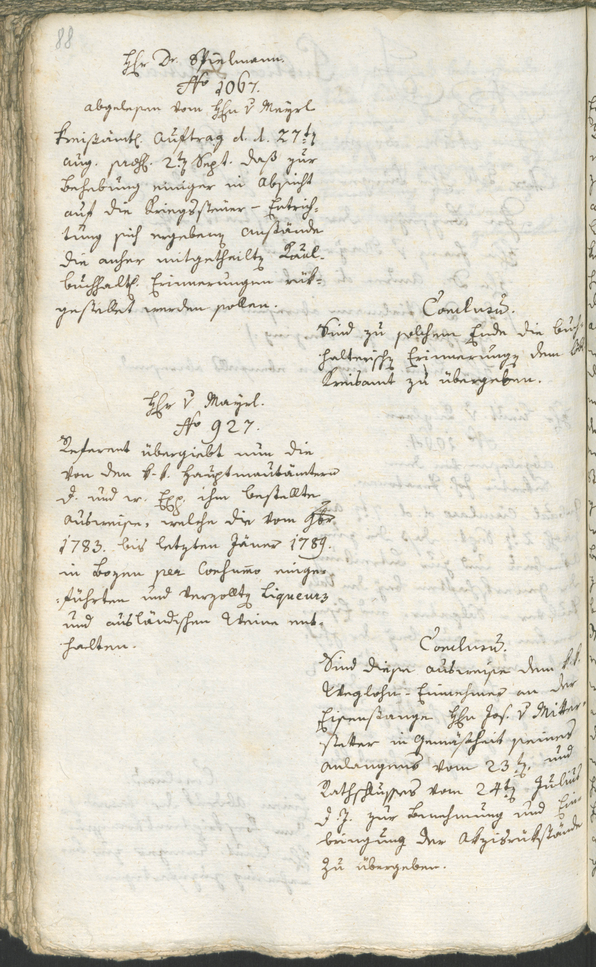 88
Hhr Dr. Spielmann.
No 1067.
abgelesen vom Hhn v Mayrl
Kreisämtl. Auftrag d. d. 27t
Aug. præs. 2t Sept. daß zur
Behebung einiger in Absicht
auf die Kriegssteuer-Entrich-
tung sich ergebenen Anstände
die anher mitgetheilte
buchhaltl. Erinnerungen rük-
gestellet werden sollen.
Conclusũ.
Sind zu solchem Ende die buch-
halterischen Erinnerungen dem
Kreisamt zu übergeben.
Hhr v Mayrl.
No 927.
Referent übergiebt nun die
von den k. k. Hauptmautämtern
d. und w. Exp. ihm bestellte
Ausweise, welche die vom 9br
1783. bis letzten Jäner 1789.
in Bozen per Consumo einge-
führten und verzollten Liqueurs
und ausländischen Weine ent-
halten.
Conclusũ.
Sind diese Ausweise dem k. k.
Weglohn-Einnehmer an der
Eisenstange Hhn Jos. v Mitter-
stetter in Gemäsheit seines
Anlangens vom 23t und
Rathschlusses vom 24t Julius
d. J. zur Benehmung und Ein-
bringung der Akzisrükstände
zu übergeben.